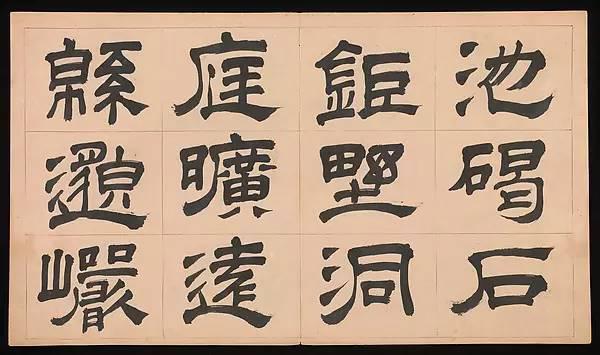 池碣石
鉅野洞
庭曠遠
緜邈巖